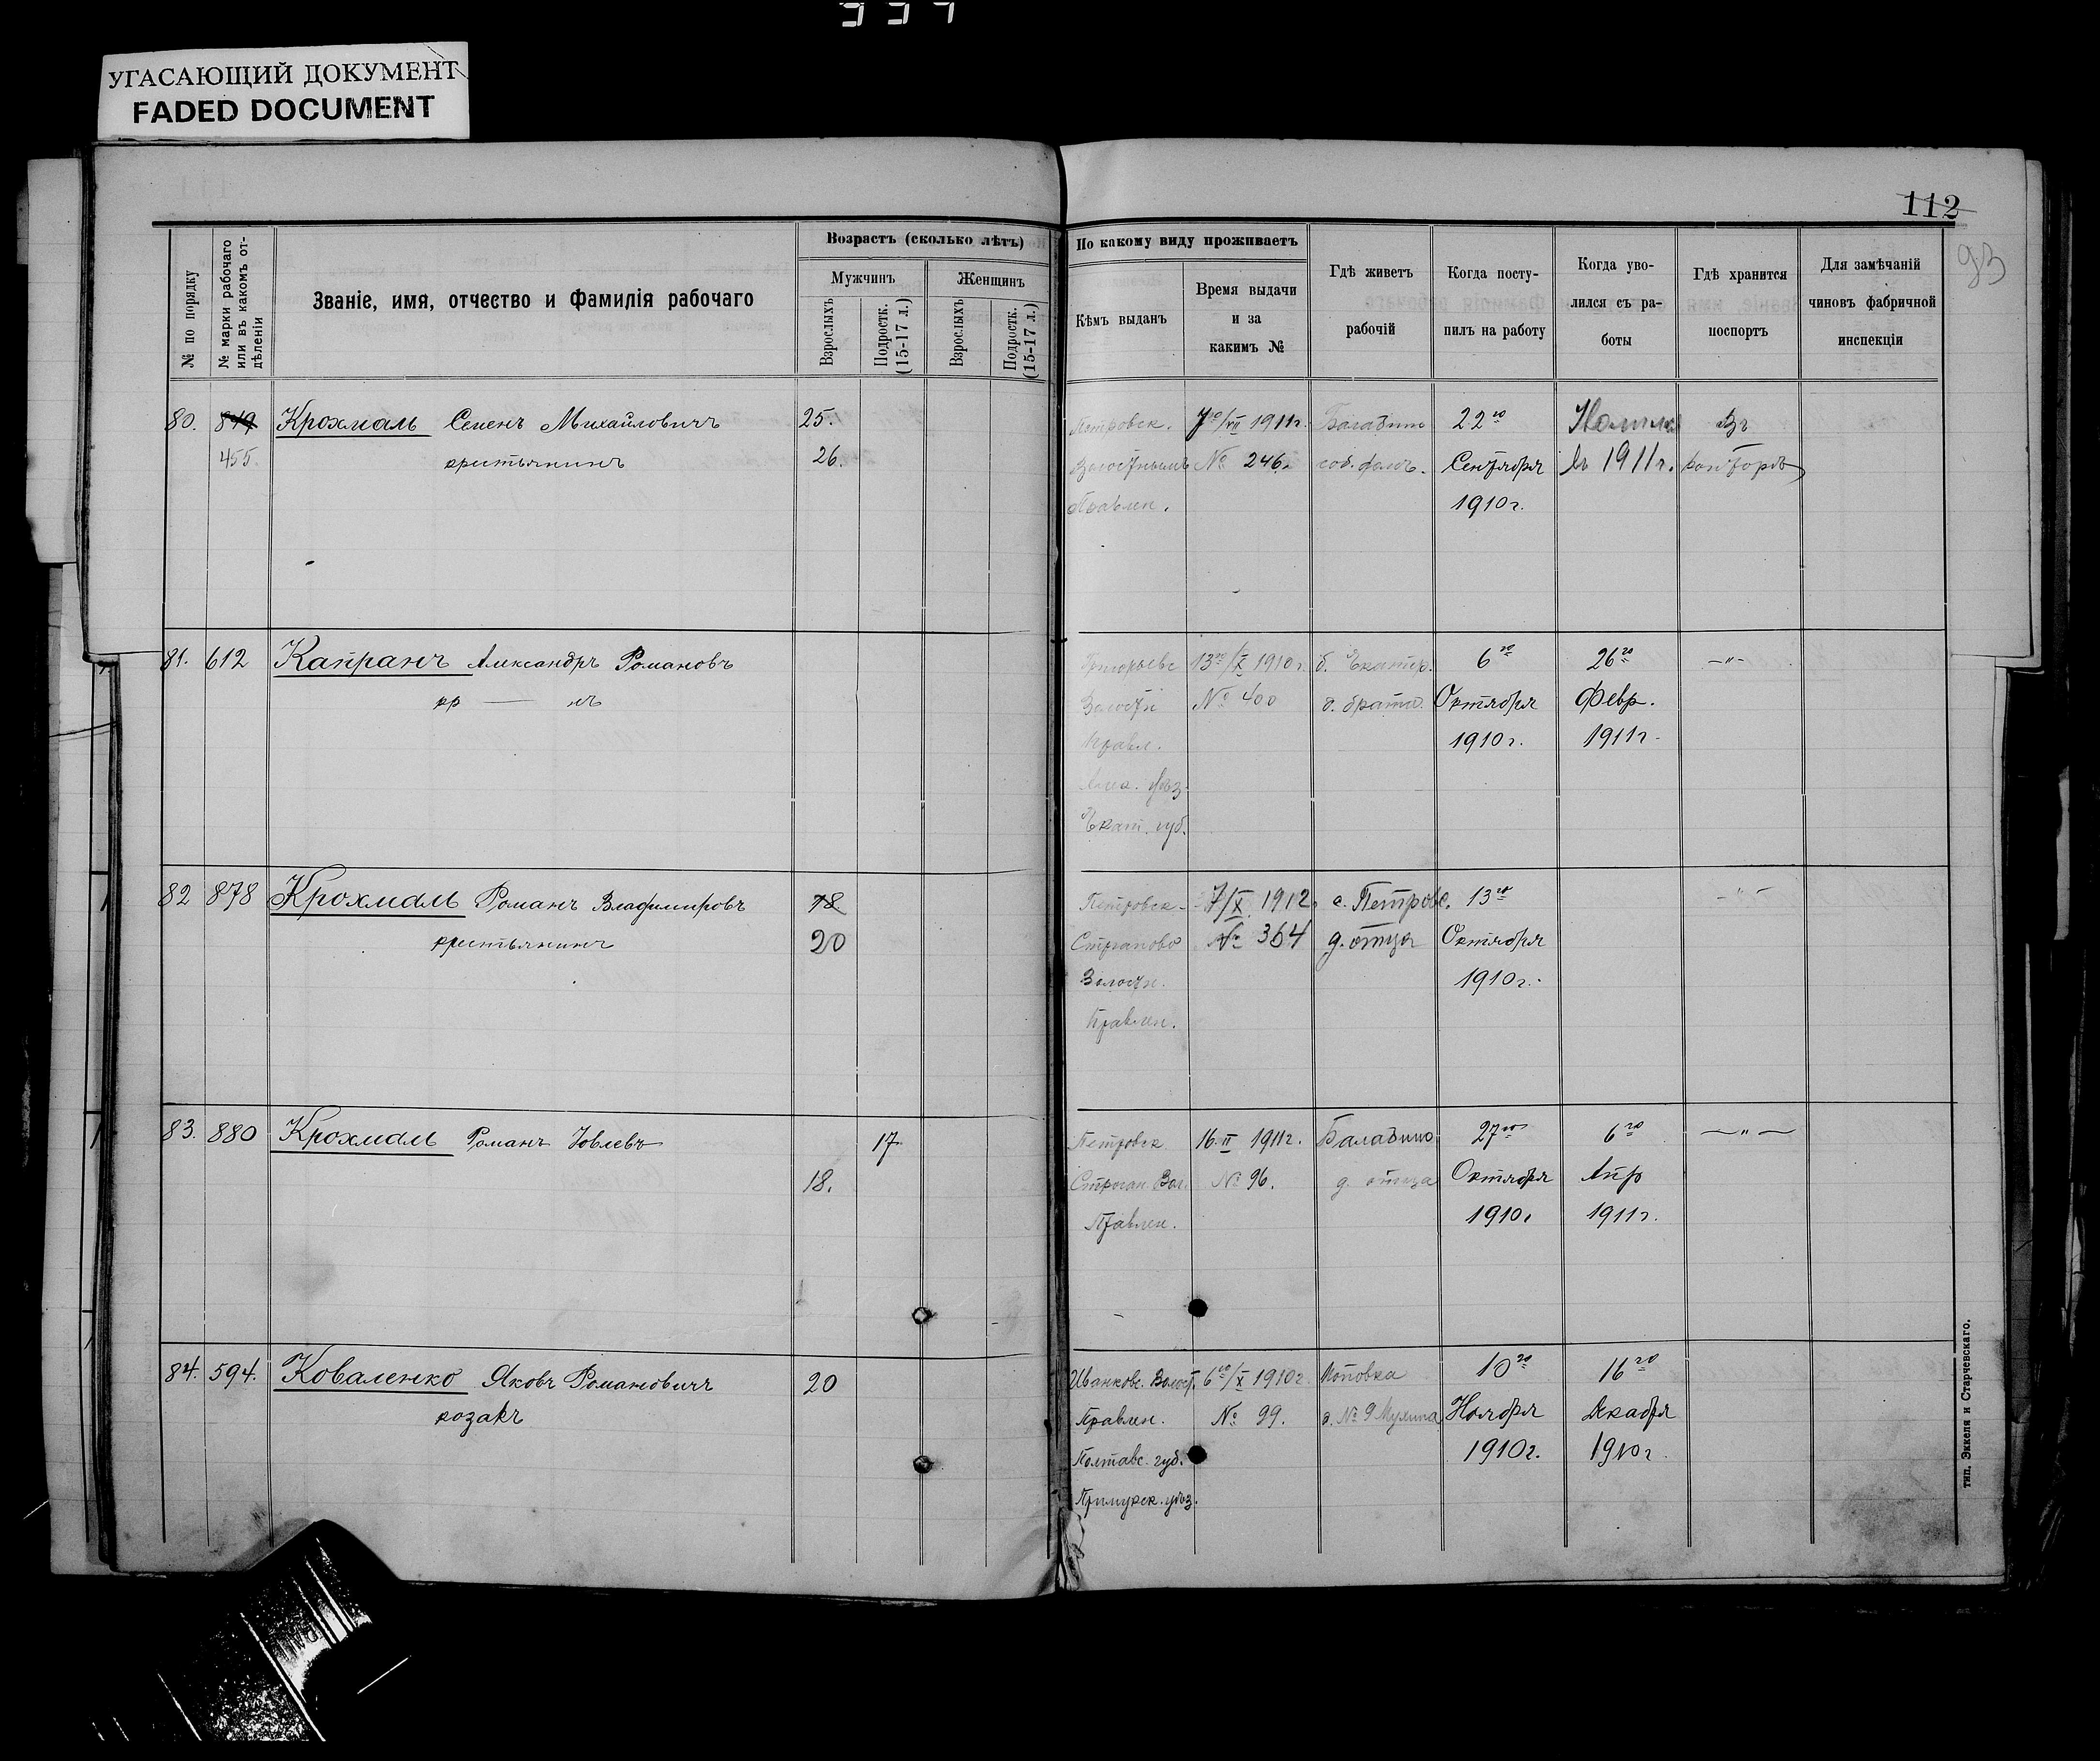 УГАСАЮЩИЙ ДОКУМЕНТ
FADED DOCUMENT
112
93
№ по порядку
№ марки рабочаго или въ какомъ отдѣленіи
Званіе, имя, отчество и фамилія рабочаго
Возрастъ (сколько лѣтъ)
Мужчинъ
Женщинъ
Взрослыхъ
Подростк. (15-17 л.)
Взрослыхъ
Подростк. (15-17 л.)
По какому виду проживаетъ
Кѣмъ выданъ
Время выдачи
и за
какимъ №
Гдѣ живетъ
рабочій
Когда посту-
пилъ на работу
Когда уво-
лился съ ра-
боты
Гдѣ хранится
поспортъ
Для замѣчаній
чиновъ фабричной
инспекціи
80. 819 Крохмаль Семенъ Михайловичъ 25. Петровск. 7го/VII 1911г. 22го Въ
455 крестьянинъ 26. Волостнымъ № 246 соб. Сентября 1911г. конторѣ
Правлен. 1910г.
81. 612 Капранъ Александръ Романовъ Григорьевс 13го/X 1910г. б. Екатер. 6го 26го —"—
кр — нъ Волостн № 400 д. брата. Октября Февр.
Правл. 1910г. 1911г.
уѣз.
Екат. губ.
82 878 Крохмаль Романъ Владимировъ 18 Петровск- 7/X 1912 с. Петровс. 13го —"—
крестьянинъ 20 Строганово № 364 д. отца Октября
Волостн. 1910г.
Правлен.
83. 880 Крохмаль Романъ Іовлевъ 17 Петровск 16.II 1911г. Балабино 27го 6го —"—
18. Строган Вол. № 96. д. отца Октября Апр
Правлен. 1910г 1911г.
84. 594. Коваленко Яковъ Романовичъ 20 Иванковс. Волост. 6го/X 1910г. Поповка 10го 16го
козакъ Правлен. № 99. д. № 9 Мухина Ноября Декабря
Полтавс. губ. 1910г. 1910г.
уѣз.
тип. Эккеля и Старчевскаго.